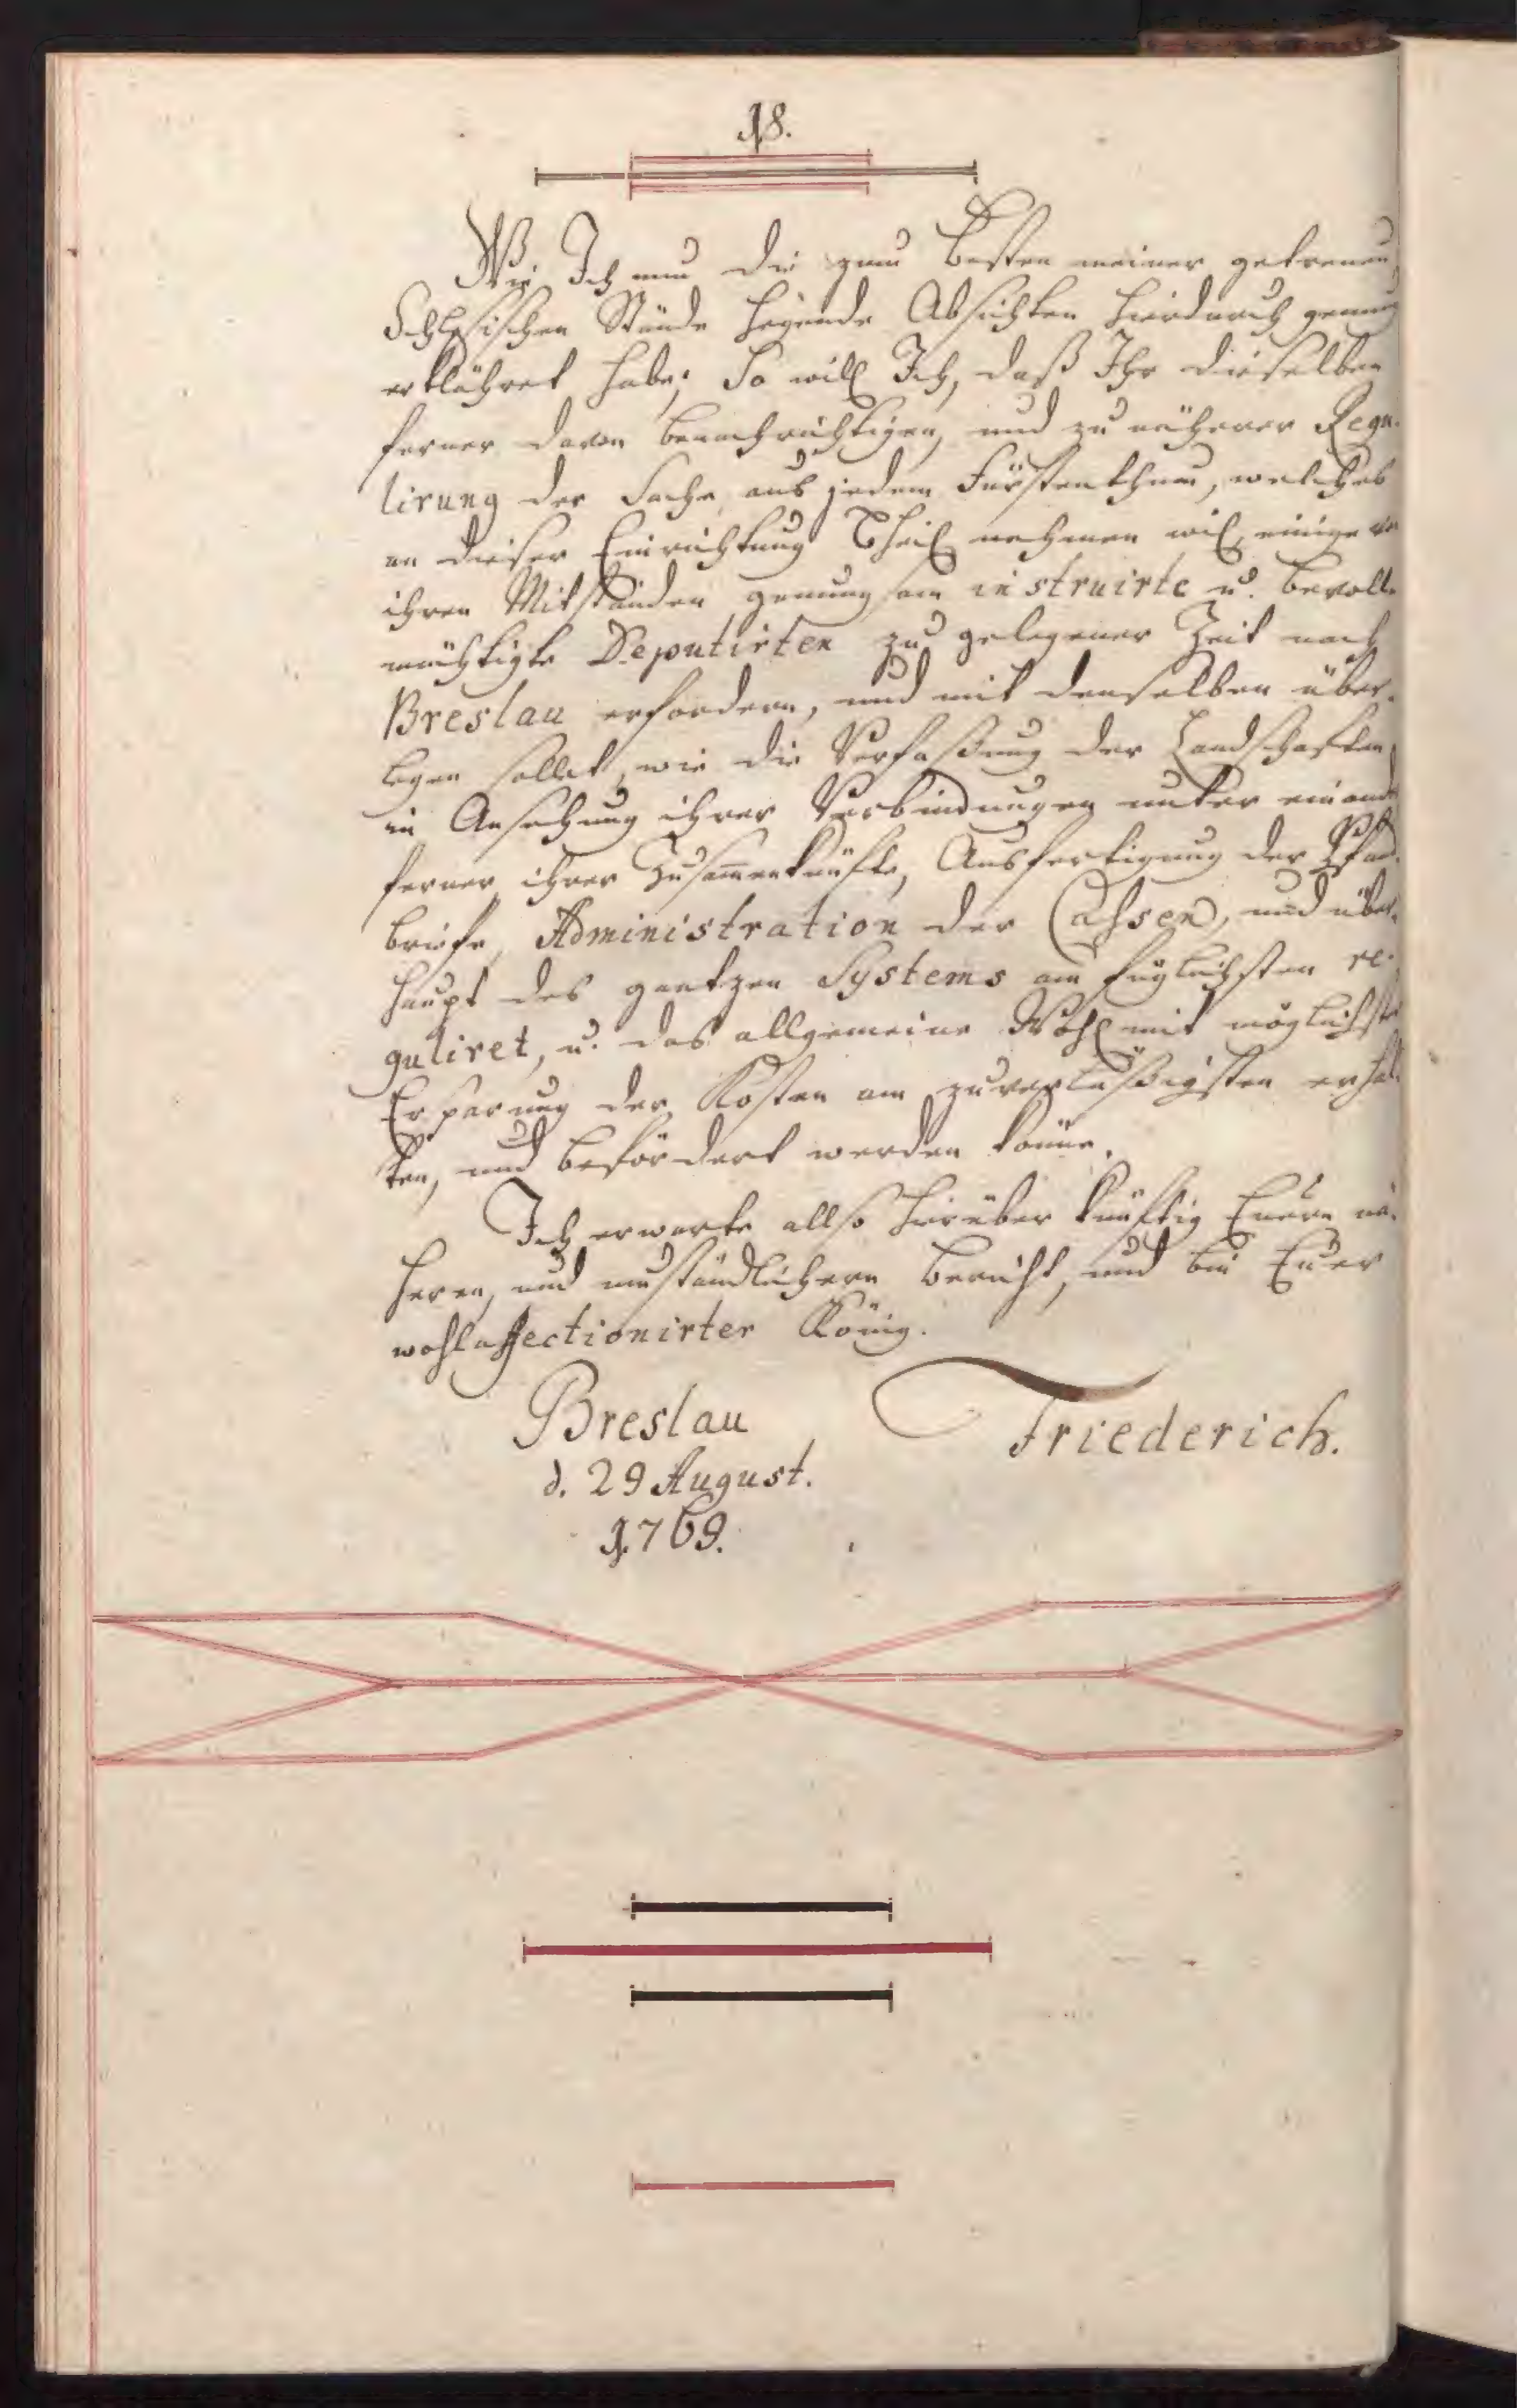 18.
Wie Ich nun die zum Besten meiner getreuen
Schlesischen Stände hegende Absichten hierdurch genung
erklähret habe; So will Ich, daß Ihr dieselben
ferner davon benachrichtigen, und zu näherer Regu-
lirung der Sache, aus jedem Fürstenthum, welches
an dieser Einrichtung Theil nehmen will, einige von
ihren Mitständen genungsam instruirte u. bevoll-
mächtigte Deputirten zu gelegener Zeit nach
Breslau erfordern, und mit denselben über-
legen sollet, wie die Verfaßung der Landschaften,
in Ansehung ihrer Verbindungen unter einander
ferner ihrer Zusam̄enkünfte, Ausfertigung der Pfand-
briefe, Administration der Cassen, und über-
haupt des gantzen Systems am fuglichsten re-
guliret, u. das allgemeine Wohl mit möglichster
Ersparung der Kosten am zuverläßigsten erhal-
ten, und befördert werden könne.
Ich erwarte allso hierüber künftig Euern nä-
hern, und umständlichern Bericht, und bin Euer
wohlaffectionirter König.
Breslau Friederich.
d. 29 August.
1769.